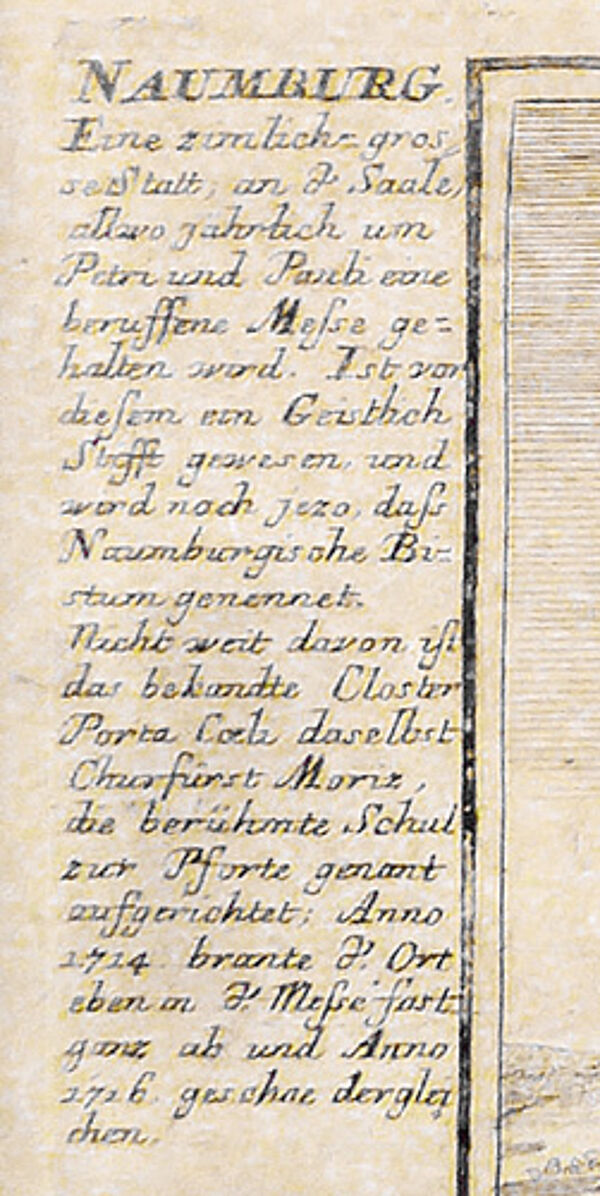 NAUMBURG.
Eine zimlich= gros,
se Statt, an d'. Saale,
allwo jährlich um
Petri und Pauli eine
beruffene Meſse ge=
halten wird. Ist vor
dieſem ein Geistlich
Stifft gewesen, und
wird noch jezo, daſs
Naumburgische Bi=
stum genennet.
Nicht weit davon iſt
das bekandte Closter
Porta Cœli daselbst
Churfürst Moriz,
die berühmte Schul
zur Pforte genant
aufgerichtet; Anno
1714. brante d'. Ort
eben in d'. Meſse fast
ganz ab und Anno
1716. geschae derglei
chen.